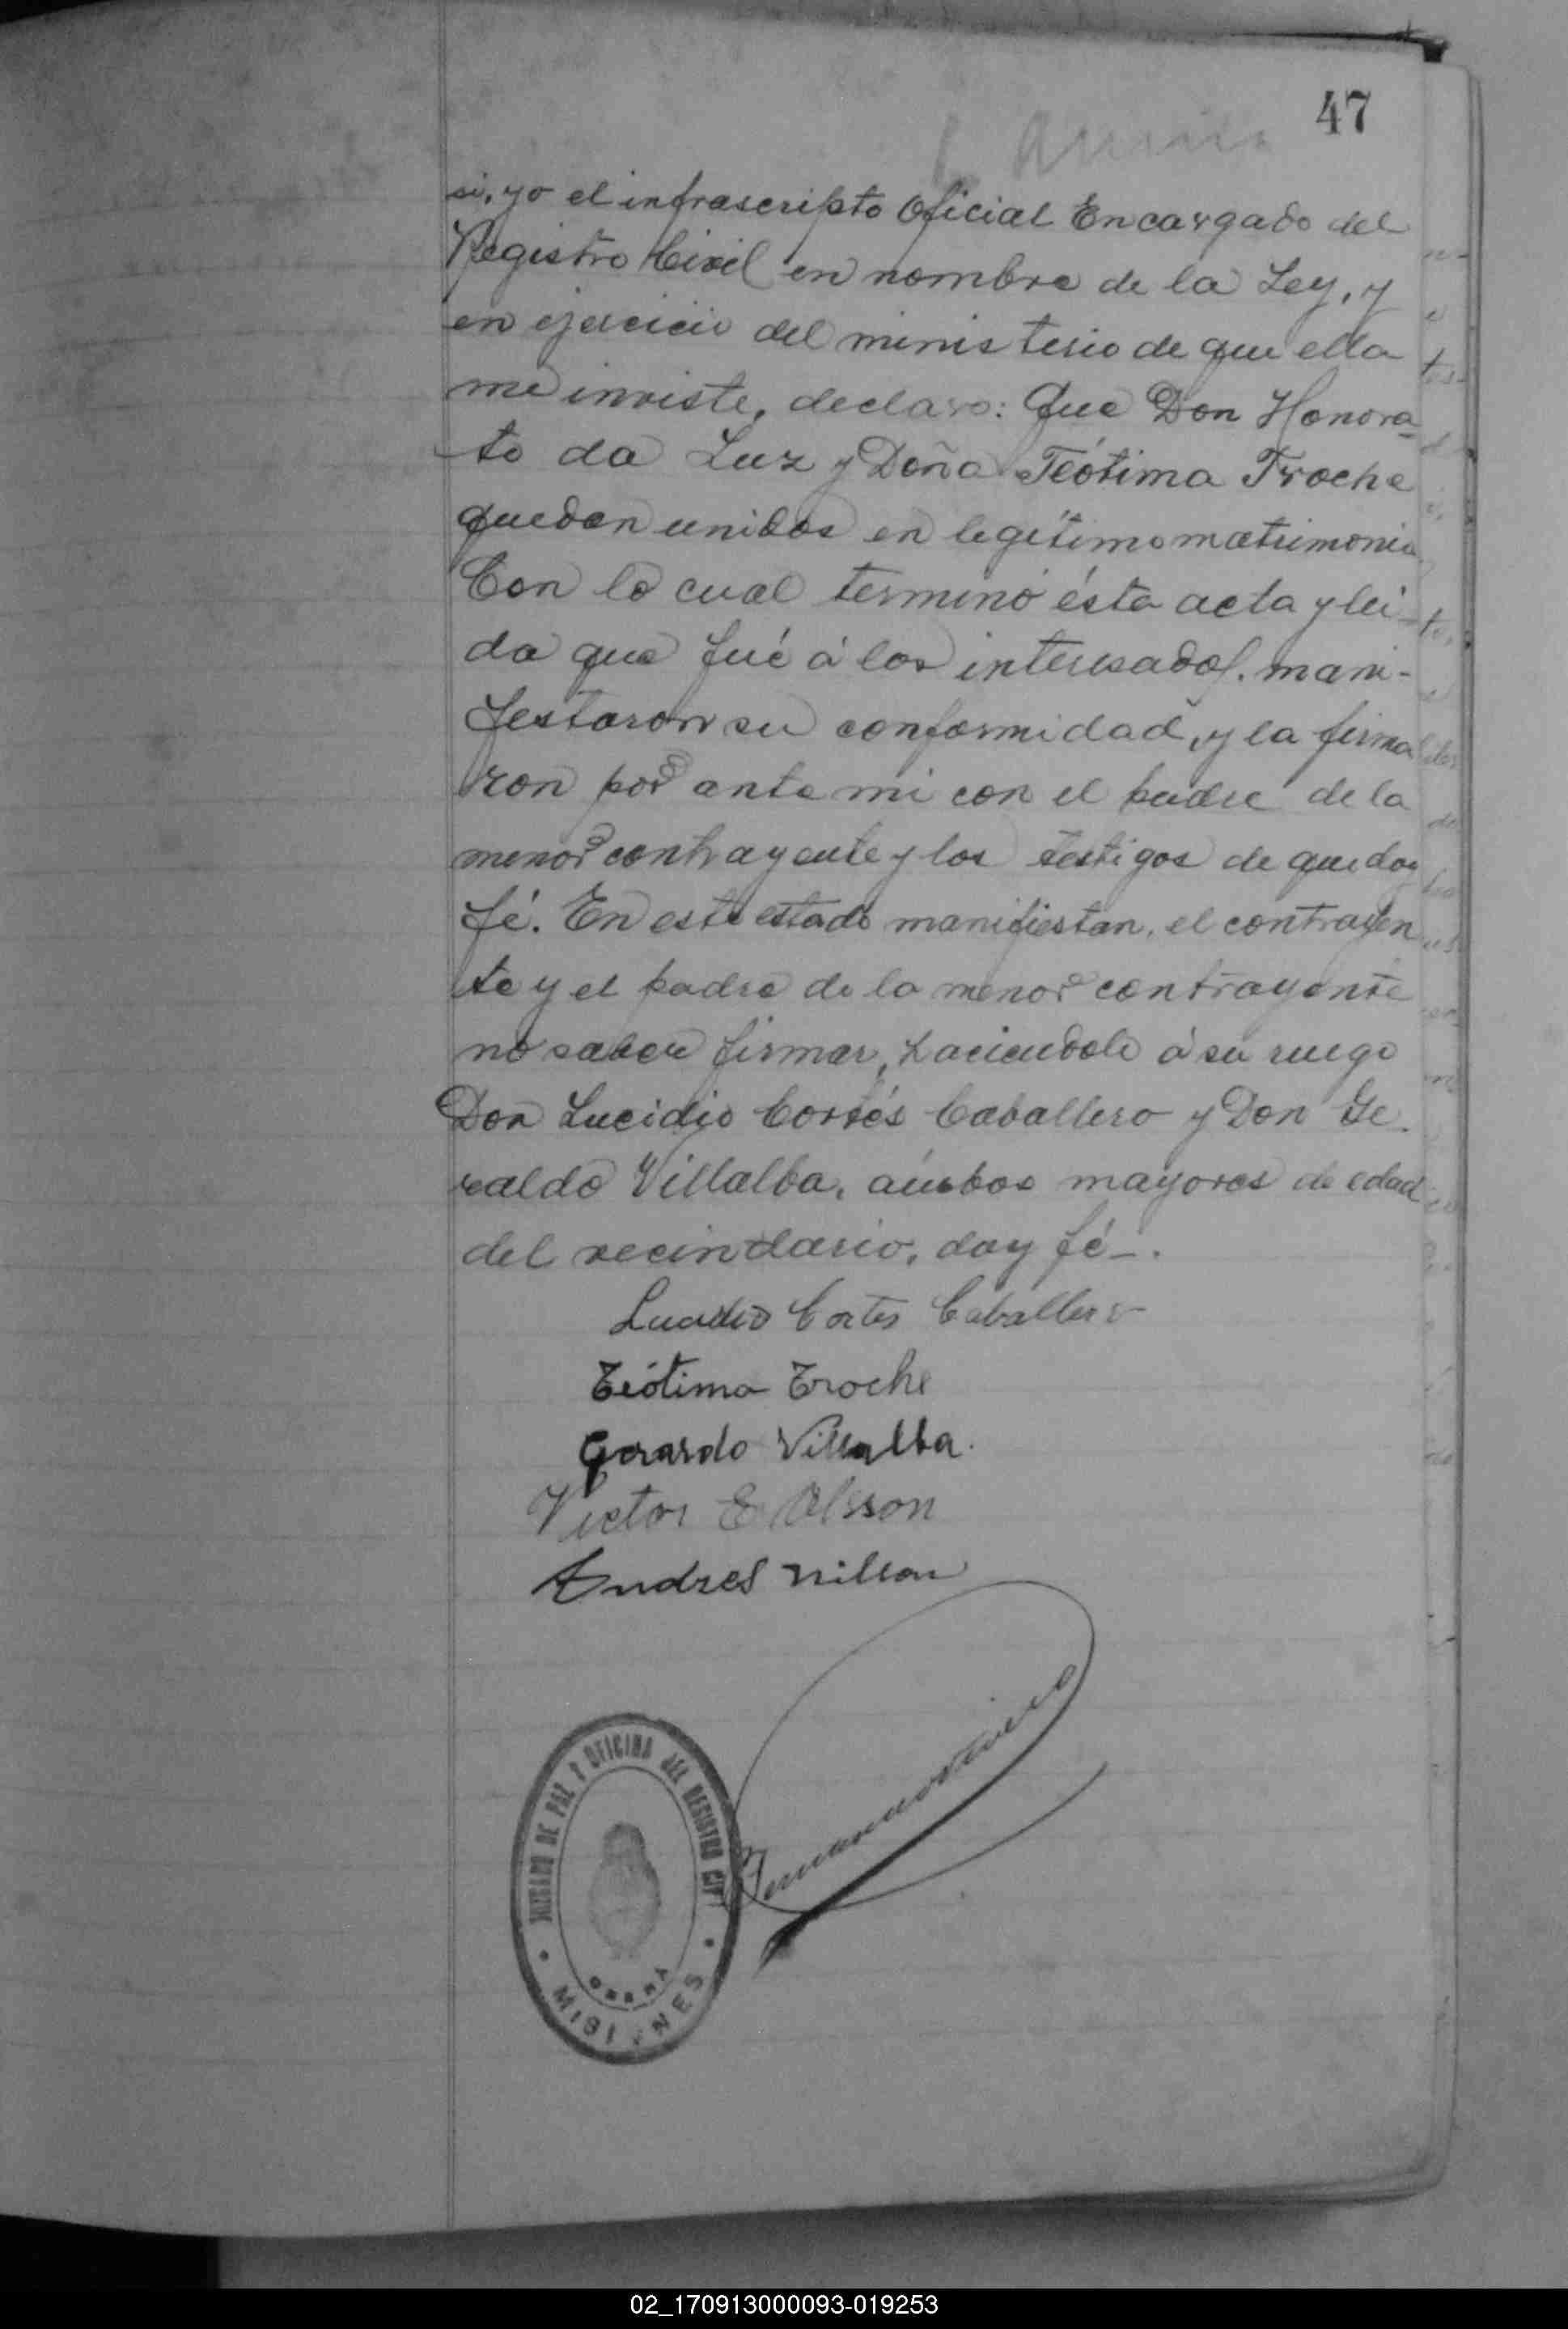 47
si, yo el infrascripto Oficial Encargado del
Registro Civil en nombre de la Ley, y
en ejercicio del ministerio de que ella
me inviste, declaro: Que Don Honora=
to da Luz y Doña Teótima Troche
quedan unidos en legítimo matrimonio.
Con lo cual terminó ésta acta y lei-
da que fué á los interesados. mani-
festaron su conformidad, y la firma
ron por ante mi con el padre de la
menor contrayente y los testigos de que doy
fé. En este estado manifiestan, el contrayen
te y el padre de la menor contrayente
no saber firmar, haciendole á su ruego
Don Lucidio Cortés Caballero y Don Ge-
raldo Villalba, ambos mayores de edad
del vecindario, doy fé-.
Lucidio Cortes Caballero
Teótima Troche
Gerardo Villalba.
Victor E Olsson
Andres Nilson
JUZGADO DE PAZ Y OFICINA DEL REGISTRO CIVIL
OBERÁ
MISIONES
02_170913000093-019253